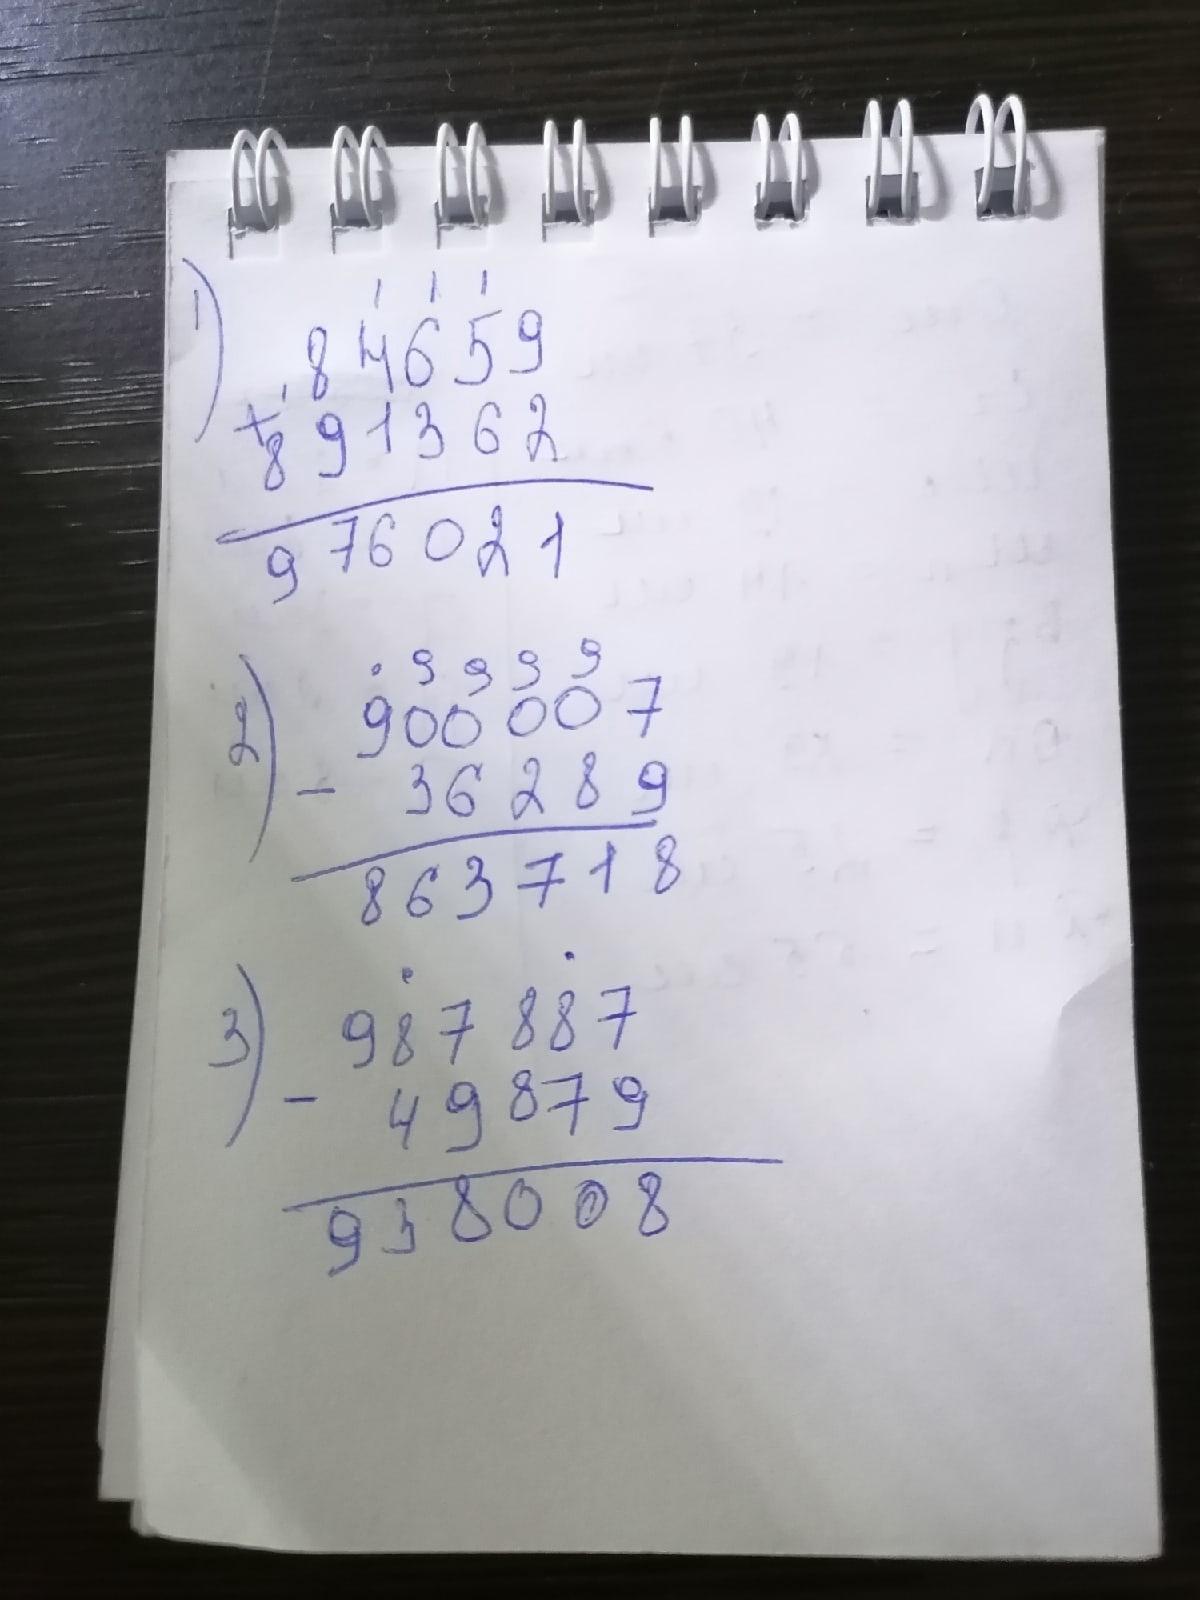 1) 1 1 1
84659
+ 1
891362
976021
2) . 9 9 9 9
900007
- 36289
863718
3) . .
987887
- 49879
938008